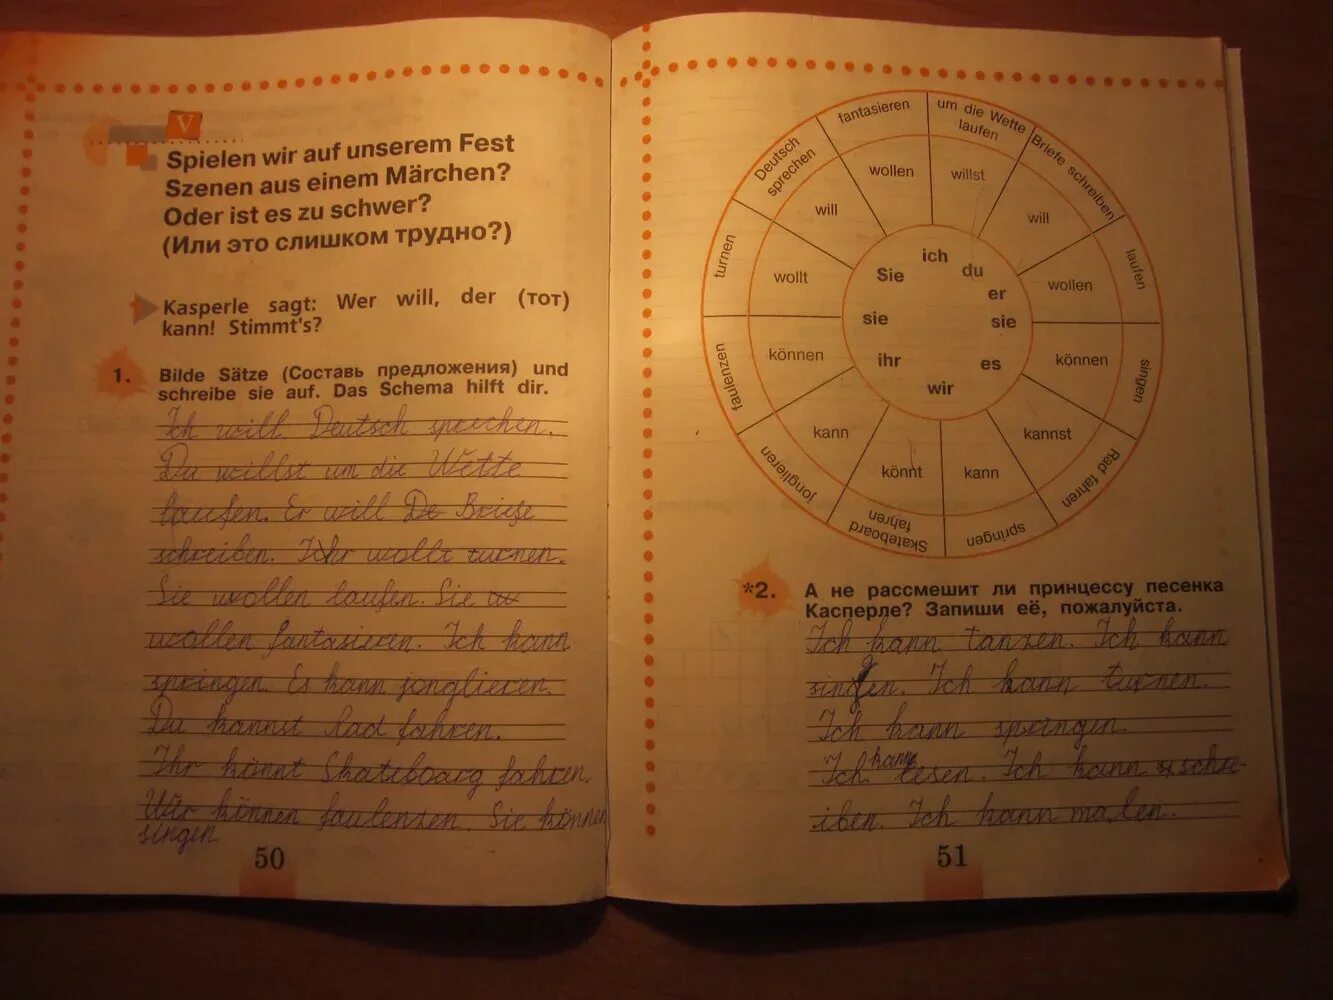 V
Spielen wir auf unserem Fest
Szenen aus einem Märchen?
Oder ist es zu schwer?
(Или это слишком трудно?)
Kasperle sagt: Wer will, der (тот)
kann! Stimmt's?
1. Bilde Sätze (Составь предложения) und
schreibe sie auf. Das Schema hilft dir.
Ich will Deutsch sprechen.
Du willst um die Wette
laufen. Er will De Briefe
schreiben. Ihr wollt turnen.
Sie wollen laufen. Sie
wollen fantasieren. Ich kann
springen. Es kann jonglieren.
Du kannst Rad fahren.
Ihr könnt Skateboarg fahren.
Wir können faulenzen. Sie können
singen
50
fantasieren
um die Wette
laufen
Briefe schreiben
laufen
singen
Rad fahren
springen
Skateboard
fahren
jonglieren
faulenzen
turnen
Deutsch
sprechen
wollen
willst
will
wollen
können
kannst
kann
könnt
kann
können
wollt
will
ich
du
er
sie
es
wir
ihr
sie
Sie
*2. А не рассмешит ли принцессу песенка
Касперле? Запиши её, пожалуйста.
Ich kann tanzen. Ich kann
singen. Ich kann turnen.
Ich kann springen.
Ich kann lesen. Ich kann schre-
iben. Ich kann malen.
51